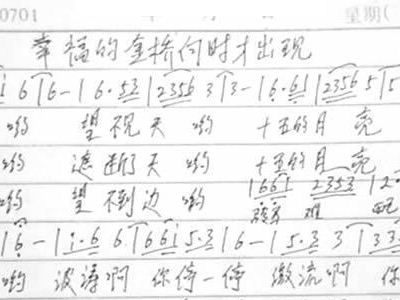 0701 星期(
幸福的金桥何时才出现
i 6 | 6 - | 6·53 | 2356 3 | 3 - | 6·61 | 2356 5 | 5
哟 望视天 哟 十五的月 亮
哟 遮断了天 哟 十五的月 亮
哟 望不到边 哟 1661 2353 | 2
| 6 - | i·6 6 | 661 5·3 | 6 - | 5·3 3 | 33
哟 波涛啊 你停一停 激流啊 你